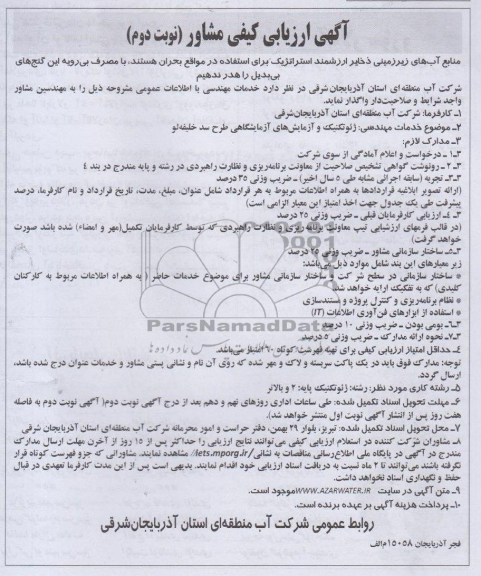 آگهی ارزیابی کیفی مشاور (نوبت دوم)
منابع آب‌های زیرزمینی ذخایر ارزشمند استراتژیک برای استفاده در مواقع بحران هستند، با مصرف بی‌رویه این گنج‌های
بی‌بدیل را هدر ندهیم
شرکت آب منطقه‌ای استان آذربایجان‌شرقی در نظر دارد خدمات مهندسی با اطلاعات عمومی مشروحه ذیل را به مهندسین مشاور
واجد شرایط و صلاحیت‌دار واگذار نماید.
۱ـ کارفرما: شرکت آب منطقه‌ای استان آذربایجان‌شرقی
۲ـ موضوع خدمات مهندسی: ژئوتکنیک و آزمایش‌های آزمایشگاهی طرح سد خلیفه‌لو
۳ـ مدارک لازم:
۳ـ۱ـ درخواست و اعلام آمادگی از سوی شرکت
۳ـ۲ـ رونوشت گواهی تشخیص صلاحیت از معاونت برنامه‌ریزی و نظارت راهبردی در رشته و پایه مندرج در بند ۴
۳ـ۳ـ تجربه (سابقه اجرائی مشابه طی ۵ سال اخیر) ـ ضریب وزنی ۳۵ درصد
(ارائه تصویر ابلاغیه قراردادها به همراه اطلاعات مربوط به هر قرارداد شامل عنوان، مبلغ، مدت، تاریخ قرارداد و نام کارفرما، درصد
پیشرفت طی یک جدول جهت اخذ امتیاز این معیار الزامی است)
۳ـ۴ـ ارزیابی کارفرمایان قبلی ـ ضریب وزنی ۲۵ درصد
(در قالب فرمهای ارزشیابی تیپ معاونت برنامه‌ریزی و نظارت راهبردی که توسط کارفرمایان تکمیل(مهر و امضاء) شده باشد صورت
خواهد گرفت)
۳ـ۵ـ ساختار سازمانی مشاور ـ ضریب وزنی ۲۵ درصد
زیر معیارهای این بند شامل موارد ذیل می‌باشد:
* ساختار سازمانی در سطح شرکت و ساختار سازمانی مشاور برای موضوع خدمات حاضر ( به همراه اطلاعات مربوط به کارکنان
کلیدی) که به تفکیک ارایه خواهد شد.
* نظام برنامه‌ریزی و کنترل پروژه و مستندسازی
* استفاده از ابزارهای فن‌آوری اطلاعات (IT)
۳ـ۶ـ بومی بودن ـ ضریب وزنی ۱۰ درصد
۳ـ۷ـ نحوه ارائه مدارک ـ ضریب وزنی ۵ درصد
۴ـ حداقل امتیاز ارزیابی کیفی برای تهیه فهرست کوتاه ۶۰ امتیاز می‌باشد.
توجه: مدارک فوق باید در یک پاکت سربسته و لاک و مهر شده که روی آن نام و نشانی پستی مشاور و خدمات عنوان درج شده باشد،
ارسال گردد.
۵ـ رشته کاری مورد نظر: رشته: ژئوتکنیک پایه: ۲ و بالاتر
۶ـ مهلت تحویل اسناد تکمیل شده: طی ساعات اداری روزهای نهم و دهم بعد از درج آگهی نوبت دوم( آگهی نوبت دوم به فاصله
هفت روز پس از انتشار آگهی نوبت اول منتشر خواهد شد).
۷ـ محل تحویل اسناد تکمیل شده: تبریز، بلوار ۲۹ بهمن، دفتر حراست و امور محرمانه شرکت آب منطقه‌ای استان آذربایجان شرقی
۸ـ مشاوران شرکت کننده در استعلام ارزیابی کیفی می‌توانند نتایج ارزیابی را حداکثر پس از ۱۵ روز از آخرن مهلت ارسال مدارک
مندرج در آگهی در پایگاه ملی اطلاع‌رسانی مناقصات به نشانی /iets.mporg.ir// مشاهده نمایند. مشاورانی که جزو فهرست کوتاه قرار
نگرفته باشند می‌توانند تا ۲ ماه نسبت به دریافت اسناد ارزیابی خود اقدام نمایند. بدیهی است پس از این مدت کارفرما تعهدی در قبال
حفظ و نگهداری اسناد نخواهد داشت.
۹ـ متن آگهی در سایت WWW.AZARWATER.IR موجود است.
۱۰ـ پرداخت هزینه آگهی بر عهده برنده است.
روابط عمومی شرکت آب منطقه‌ای استان آذربایجان‌شرقی
فجر آذربایجان ۱۵۰۵۸م/الف
ParsNamadData